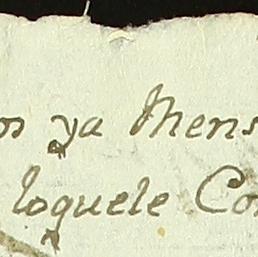 ya Mens
loquele Con